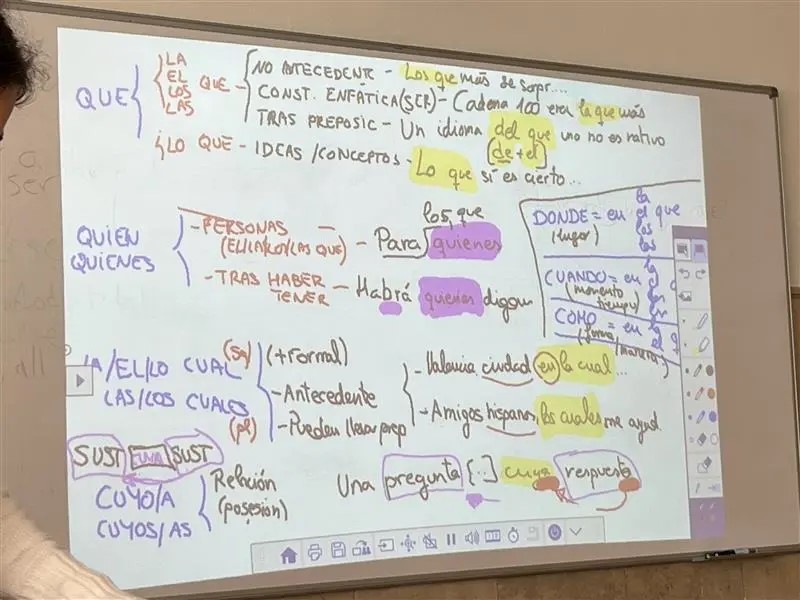 QUE
LA
EL
LOS
LAS
QUE - NO ANTECEDENTE - Los que más se sorpr...
CONST. ENFÁTICA (SER) - Cadena 100 era la que más
TRAS PREPOSIC - Un idioma del que uno no es nativo
(de + el)
LO QUE - IDEAS / CONCEPTOS - Lo que sí es cierto...
QUIEN
QUIENES
- PERSONAS
(EL/LA/LOS/LAS QUE) - Para quienes
los que
- TRAS HABER
TENER - Habrá quienes digan
DONDE = en la
el que
los
las
(lugar)
CUANDO = en
(momento
tiempo)
COMO = en la
(forma/manera)
LA/EL/LO CUAL (sg)
LAS/LOS CUALES (pl)
(+ formal)
- Antecedente
- Pueden llevar prep
- Valencia ciudad en la cual...
- Amigos hispanos, los cuales me ayud
SUST SUST
CUYO/A
CUYOS/AS
Relación
(posesión)
Una pregunta [..] cuya respuesta